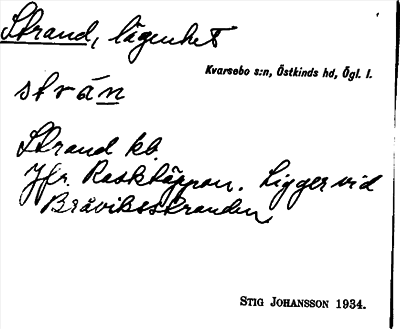 Strand, lägenhet
Kvarsebo s:n, Östkinds hd, Ögl. l.
strán
Strand kb.
Jfr. Rosktäppan. Ligger vid
Bråviksstranden.
STIG JOHANSSON 1934.